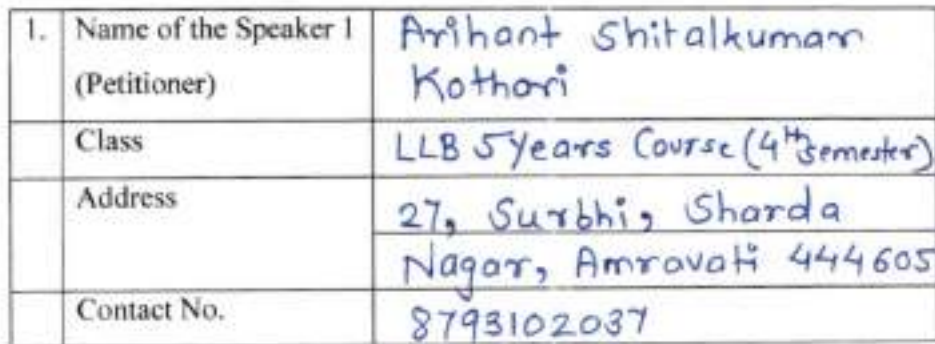 1. Name of the Speaker 1 Arihant Shitalkumar
(Petitioner) Kothari
Class LLB 5 Years Course (4th Semester)
Address 27, Surbhi, Sharda
Nagar, Amravati 444605
Contact No. 8793102037